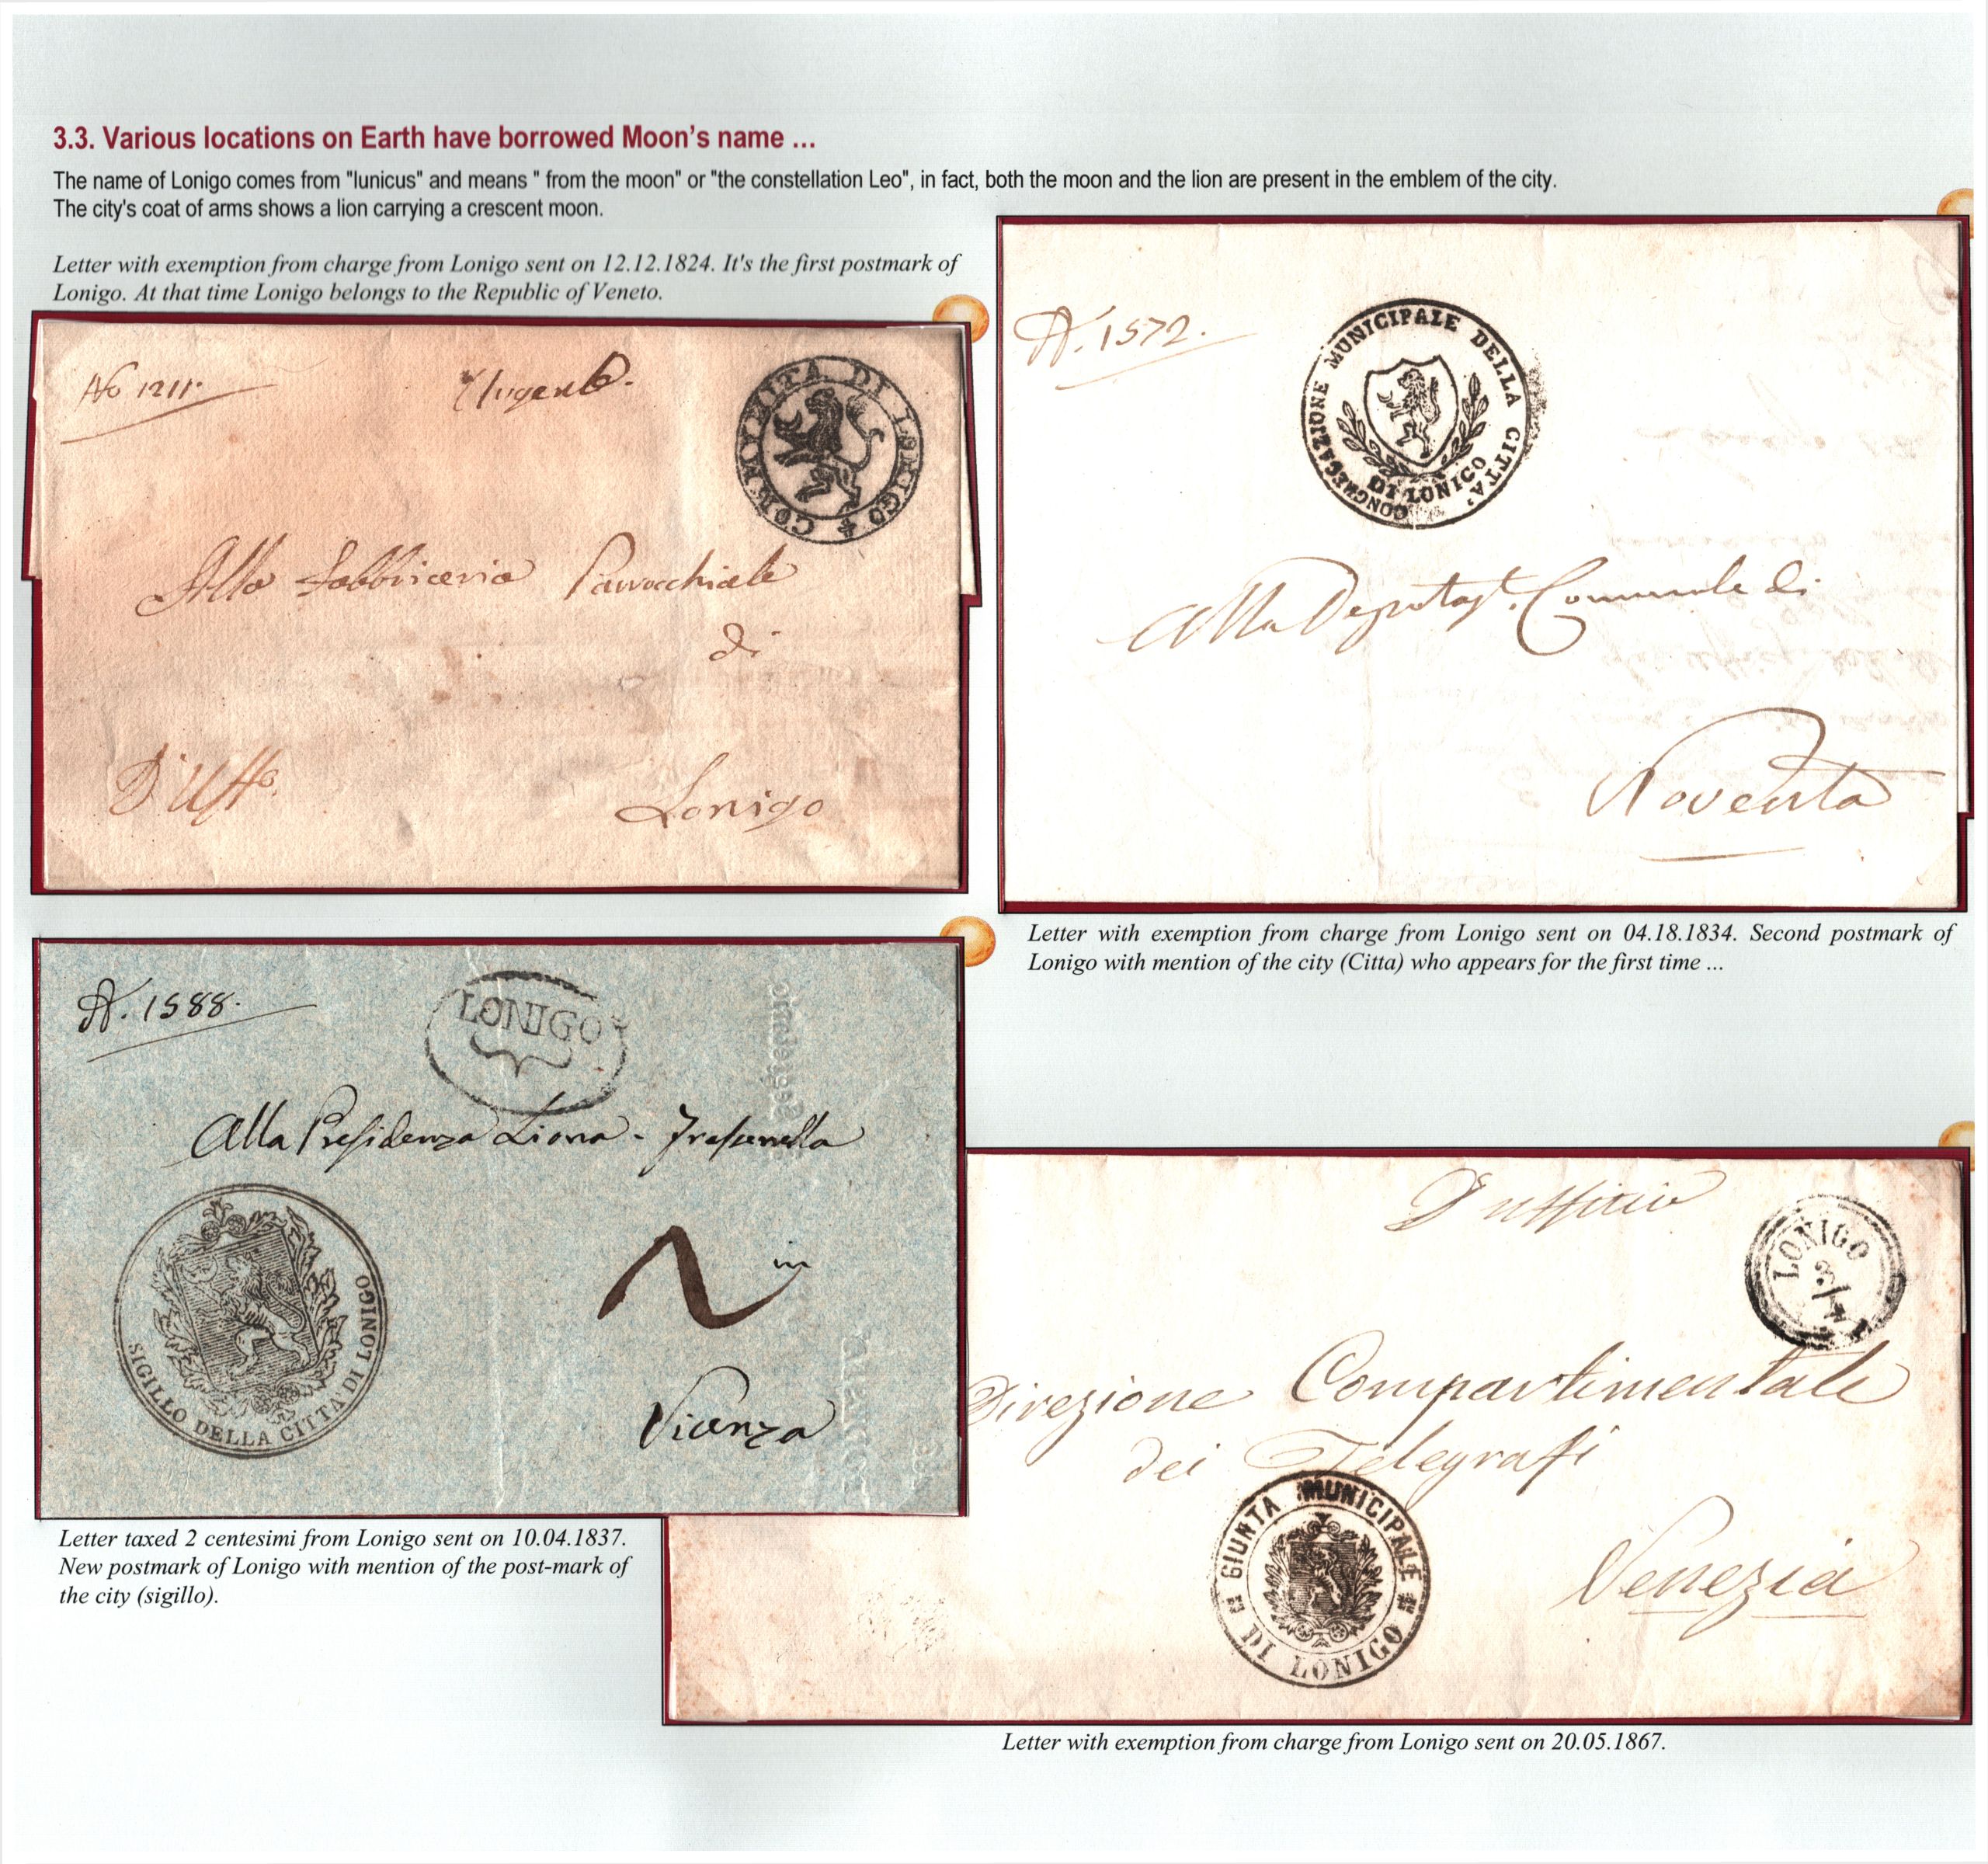 3.3. Various locations on Earth have borrowed Moon's name ...
The name of Lonigo comes from "lunicus" and means " from the moon" or "the constellation Leo", in fact, both the moon and the lion are present in the emblem of the city.
The city's coat of arms shows a lion carrying a crescent moon.
Letter with exemption from charge from Lonigo sent on 12.12.1824. It's the first postmark of
Lonigo. At that time Lonigo belongs to the Republic of Veneto.
No 1211.
COMMVNITA DI LONIGO
Alla Fabbriceria Parrocchiale
di
D'Uffo.
Lonigo
N. 1572.
CONGREGAZIONE MUNICIPALE DELLA CITTA'
DI LONIGO
Alla Deputaz. Comunale di
Noventa
Letter with exemption from charge from Lonigo sent on 04.18.1834. Second postmark of
Lonigo with mention of the city (Citta) who appears for the first time ...
N. 1588.
LONIGO
Alla Presidenza Liona -
2
in
Vicenza
SIGILLO DELLA CITTA' DI LONIGO
Letter taxed 2 centesimi from Lonigo sent on 10.04.1837.
New postmark of Lonigo with mention of the post-mark of
the city (sigillo).
D'uffizio
LONIGO
Direzione Compartimentale
dei Telegrafi
Venezia
GIUNTA MUNICIPALE
DI LONIGO
Letter with exemption from charge from Lonigo sent on 20.05.1867.